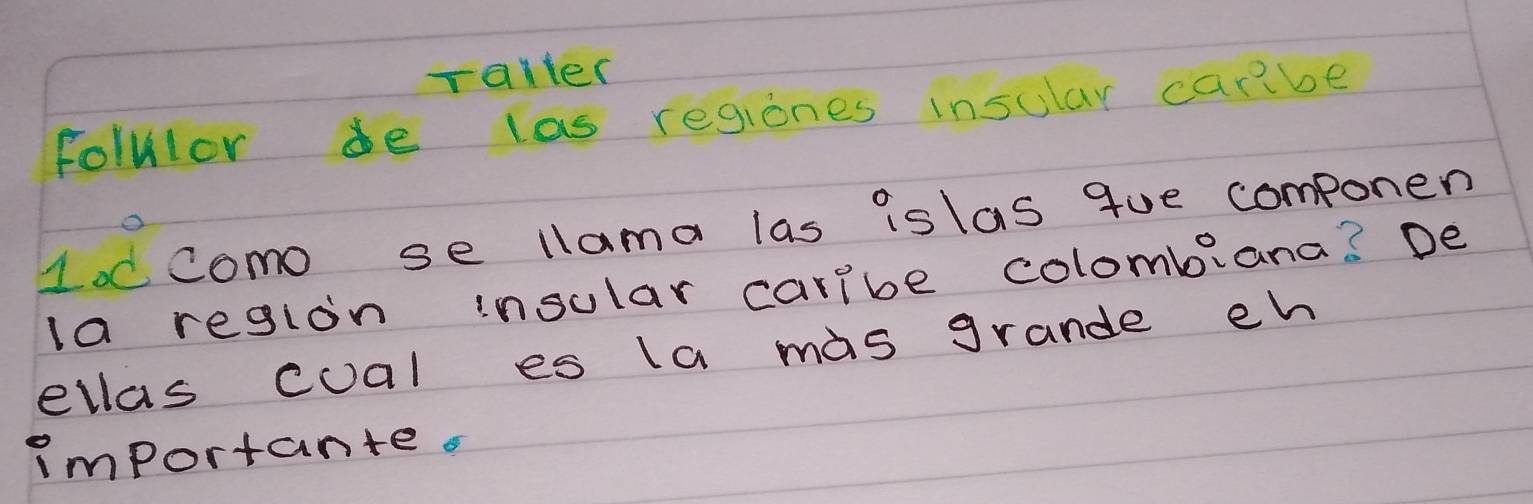 Taller
Folklor de las regiónes insular caribe
1. ¿ como se llama las islas que componen
la región insular caribe colombiana? De
ellas cual es la más grande eh
importante.